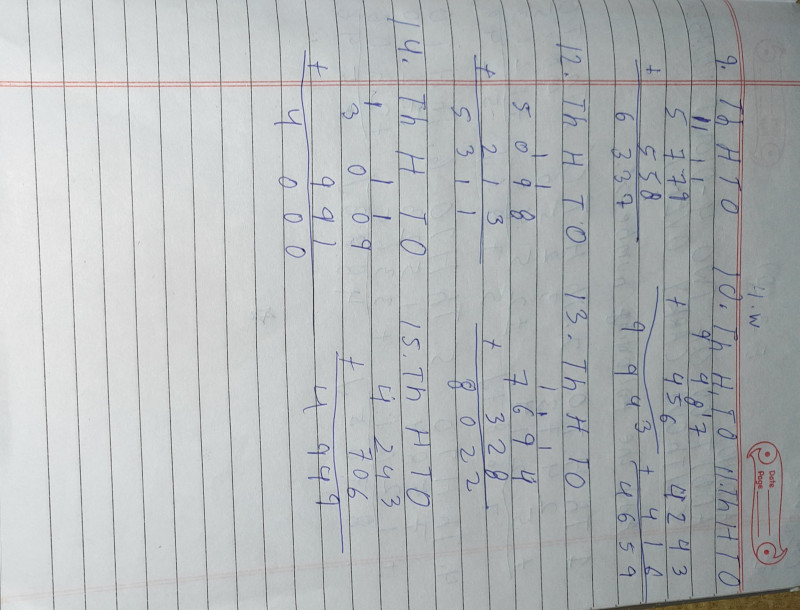 Date
Page
H.W
9. Th H T O 10. Th H T O 11. Th H T O
1 1 1 9 4 8 7
5 7 7 9 + 4 5 6 4 2 4 3
+ 5 5 8 + 4 1 6
6 3 3 7 9 9 4 3 4 6 5 9
12. Th H T O 13. Th H T O
1 1 1 1 1
5 0 9 8 7 6 9 4
+ 2 1 3 + 3 2 8
5 3 1 1 8 0 2 2
14. Th H T O 15. Th H T O
1 1 1 4 2 4 3
3 0 0 9 + 7 0 6
+ 9 9 1 4 9 4 9
4 0 0 0